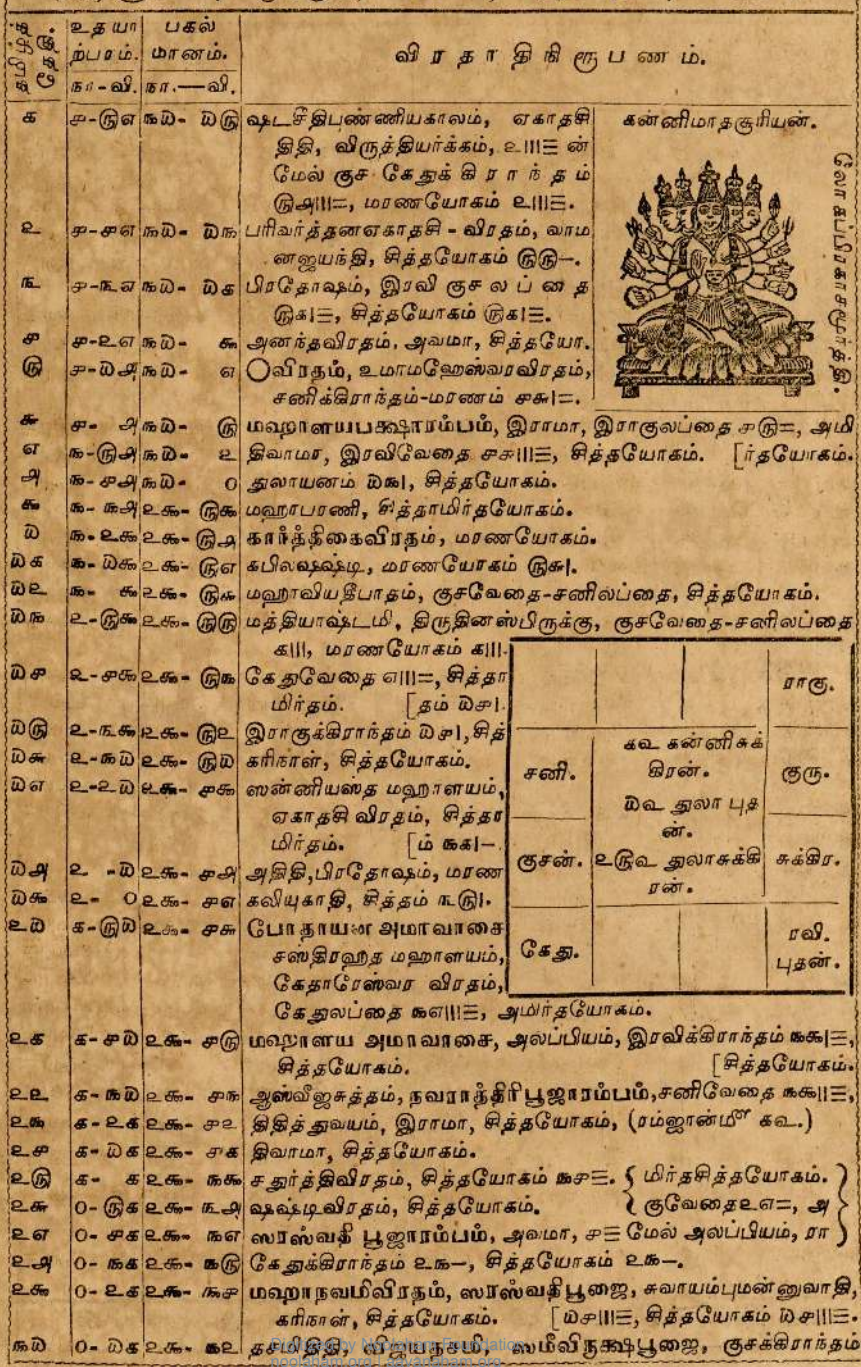 தமிழ்த் தேதி
உதயாற்பரம். பகல் மானம்.
நா-வி. நா.—வி.
விரதாதிநிரூபணம்.
க ௪-௫எ ௩௰- ௰௫ ஷடசீதிபுண்ணியகாலம், ஏகாதசி
திதி, விருத்தியர்க்கம், ன்
மேல் குச கேதுக்கிராந்தம்
மரணயோகம்
கன்னிமாதசூரியன்.
உ ௪-௪எ ௩௰- ௰௩ பரிவர்த்தனஏகாதசி - விரதம், வாம
னஜயந்தி, சித்தயோகம் ௫௫–.
௩ ௪-௩எ ௩௰- ௰க பிரதோஷம், இரவி குச லப்தை
சித்தயோகம்
௪ ௪-உஎ ௩௰- ௯ அனந்தவிரதம், அவமா, சித்தயோ.
௫ ௪-௰அ ௩௰- எ ○விரதம், உமாமஹேஸ்வரவிரதம்,
சனிக்கிராந்தம்-மரணம்
௬ ௪- அ ௩௰- ௫ மஹாளயபக்ஷாரம்பம், இராமா, இராகுலப்தை ௪௫=, அமி
எ ௩-௫அ ௩௰- உ திவாமா, இரவிவேதை சித்தயோகம். [ர்தயோகம்.
அ ௩-௪அ ௩௰- 0 துலாயனம் சித்தயோகம்.
௯ ௩-௩அ உ௯-௫௯ மஹாபரணி, சித்தாமிர்தயோகம்.
௰ ௩-உ௯ உ௯-௫அ கார்த்திகைவிரதம், மரணயோகம்.
௰க ௩-௰௯ உ௯-௫எ கபிலஷஷ்டி, மரணயோகம் ௫௬|.
௰உ ௩- ௯ உ௯-௫௬ மஹாவியதீபாதம், குசவேதை-சனிலப்தை, சித்தயோகம்.
௰௩ உ-௫௯ உ௯-௫௫ மத்தியாஷ்டமி, திருதினஸ்பிருக்கு, குசவேதை-சனிலப்தை
க|||, மரணயோகம் க|||.
௰௪ உ-௪௯ உ௯-௫௩ கேதுவேதை எ||=, சித்தா
மிர்தம். [தம் ௰௪|.
௰௫ உ-௩௯ உ௯-௫உ இராகுக்கிராந்தம் ௰௪|, சித்
௰௬ உ-௩௰ உ௯-௫௰ கரிநாள், சித்தயோகம்.
௰எ உ-உ௰ உ௯-௪௯ ஸன்னியஸ்த மஹாளயம்,
ஏகாதசி விரதம், சித்தா
மிர்தம். [ம் ௩௧|–.
௰அ உ-௰ உ௯-௪அ அதிதி,பிரதோஷம், மரண
௰௯ உ- 0 உ௯-௪எ கலியுகாதி, சித்தம் ௩௫|.
உ௰ க-௫௰ உ௯-௪௬ போதாயன அமாவாசை
சஸ்திரஹத மஹாளயம்,
கேதாரேஸ்வர விரதம்,
கேதுலப்தை அமிர்தயோகம்.
ராகு.
சனி. கஉ கன்னிசுக்கிரன். குரு.
௰உ துலா புதன்.
குசன். உ௫உ துலாசுக்கிரன். சுக்கிர.
கேது. ரவி. புதன்.
உக க-௪௰ உ௯-௪௫ மஹாளய அமாவாசை, அலப்பியம், இரவிக்கிராந்தம்
சித்தயோகம். [சித்தயோகம்.
உஉ க-௩௰ உ௯-௪௩ ஆஸ்வீஜசுத்தம், நவராத்திரிபூஜாரம்பம்,சனிவேதை
உ௩ க-உக உ௯-௪உ திதித்துவயம், இராமா, சித்தயோகம், (ரம்ஜான்மீ கஉ.)
உ௪ க-௰க உ௯-௪க திவாமா, சித்தயோகம்.
உ௫ க- க உ௯-௩௯ சதுர்த்திவிரதம், சித்தயோகம் { மிர்தசித்தயோகம். }
உ௬ 0-௫க உ௯-௩அ ஷஷ்டிவிரதம், சித்தயோகம். { குவேதைஉஎ=, அ }
உஎ 0-௪க உ௯-௩எ ஸரஸ்வதி பூஜாரம்பம், அவமா, மேல் அலப்பியம், ரா }
உஅ 0-௩க உ௯-௩௫ கேதுக்கிராந்தம் உ௩–, சித்தயோகம் உ௩–.
உ௯ 0-உக உ௯-௩௪ மஹாநவமிவிரதம், ஸரஸ்வதிபூஜை, சுவாயம்புமன்னுவாதி,
கரிநாள், சித்தயோகம். சித்தயோகம்
௩௰ 0-௰க உ௯-௩உ தசமிதிதி, விஜயதசமி, ஸமீவிருக்ஷபூஜை, குசக்கிராந்தம்
Digitized by Noolaham Foundation.
noolaham.org | aavanaham.org